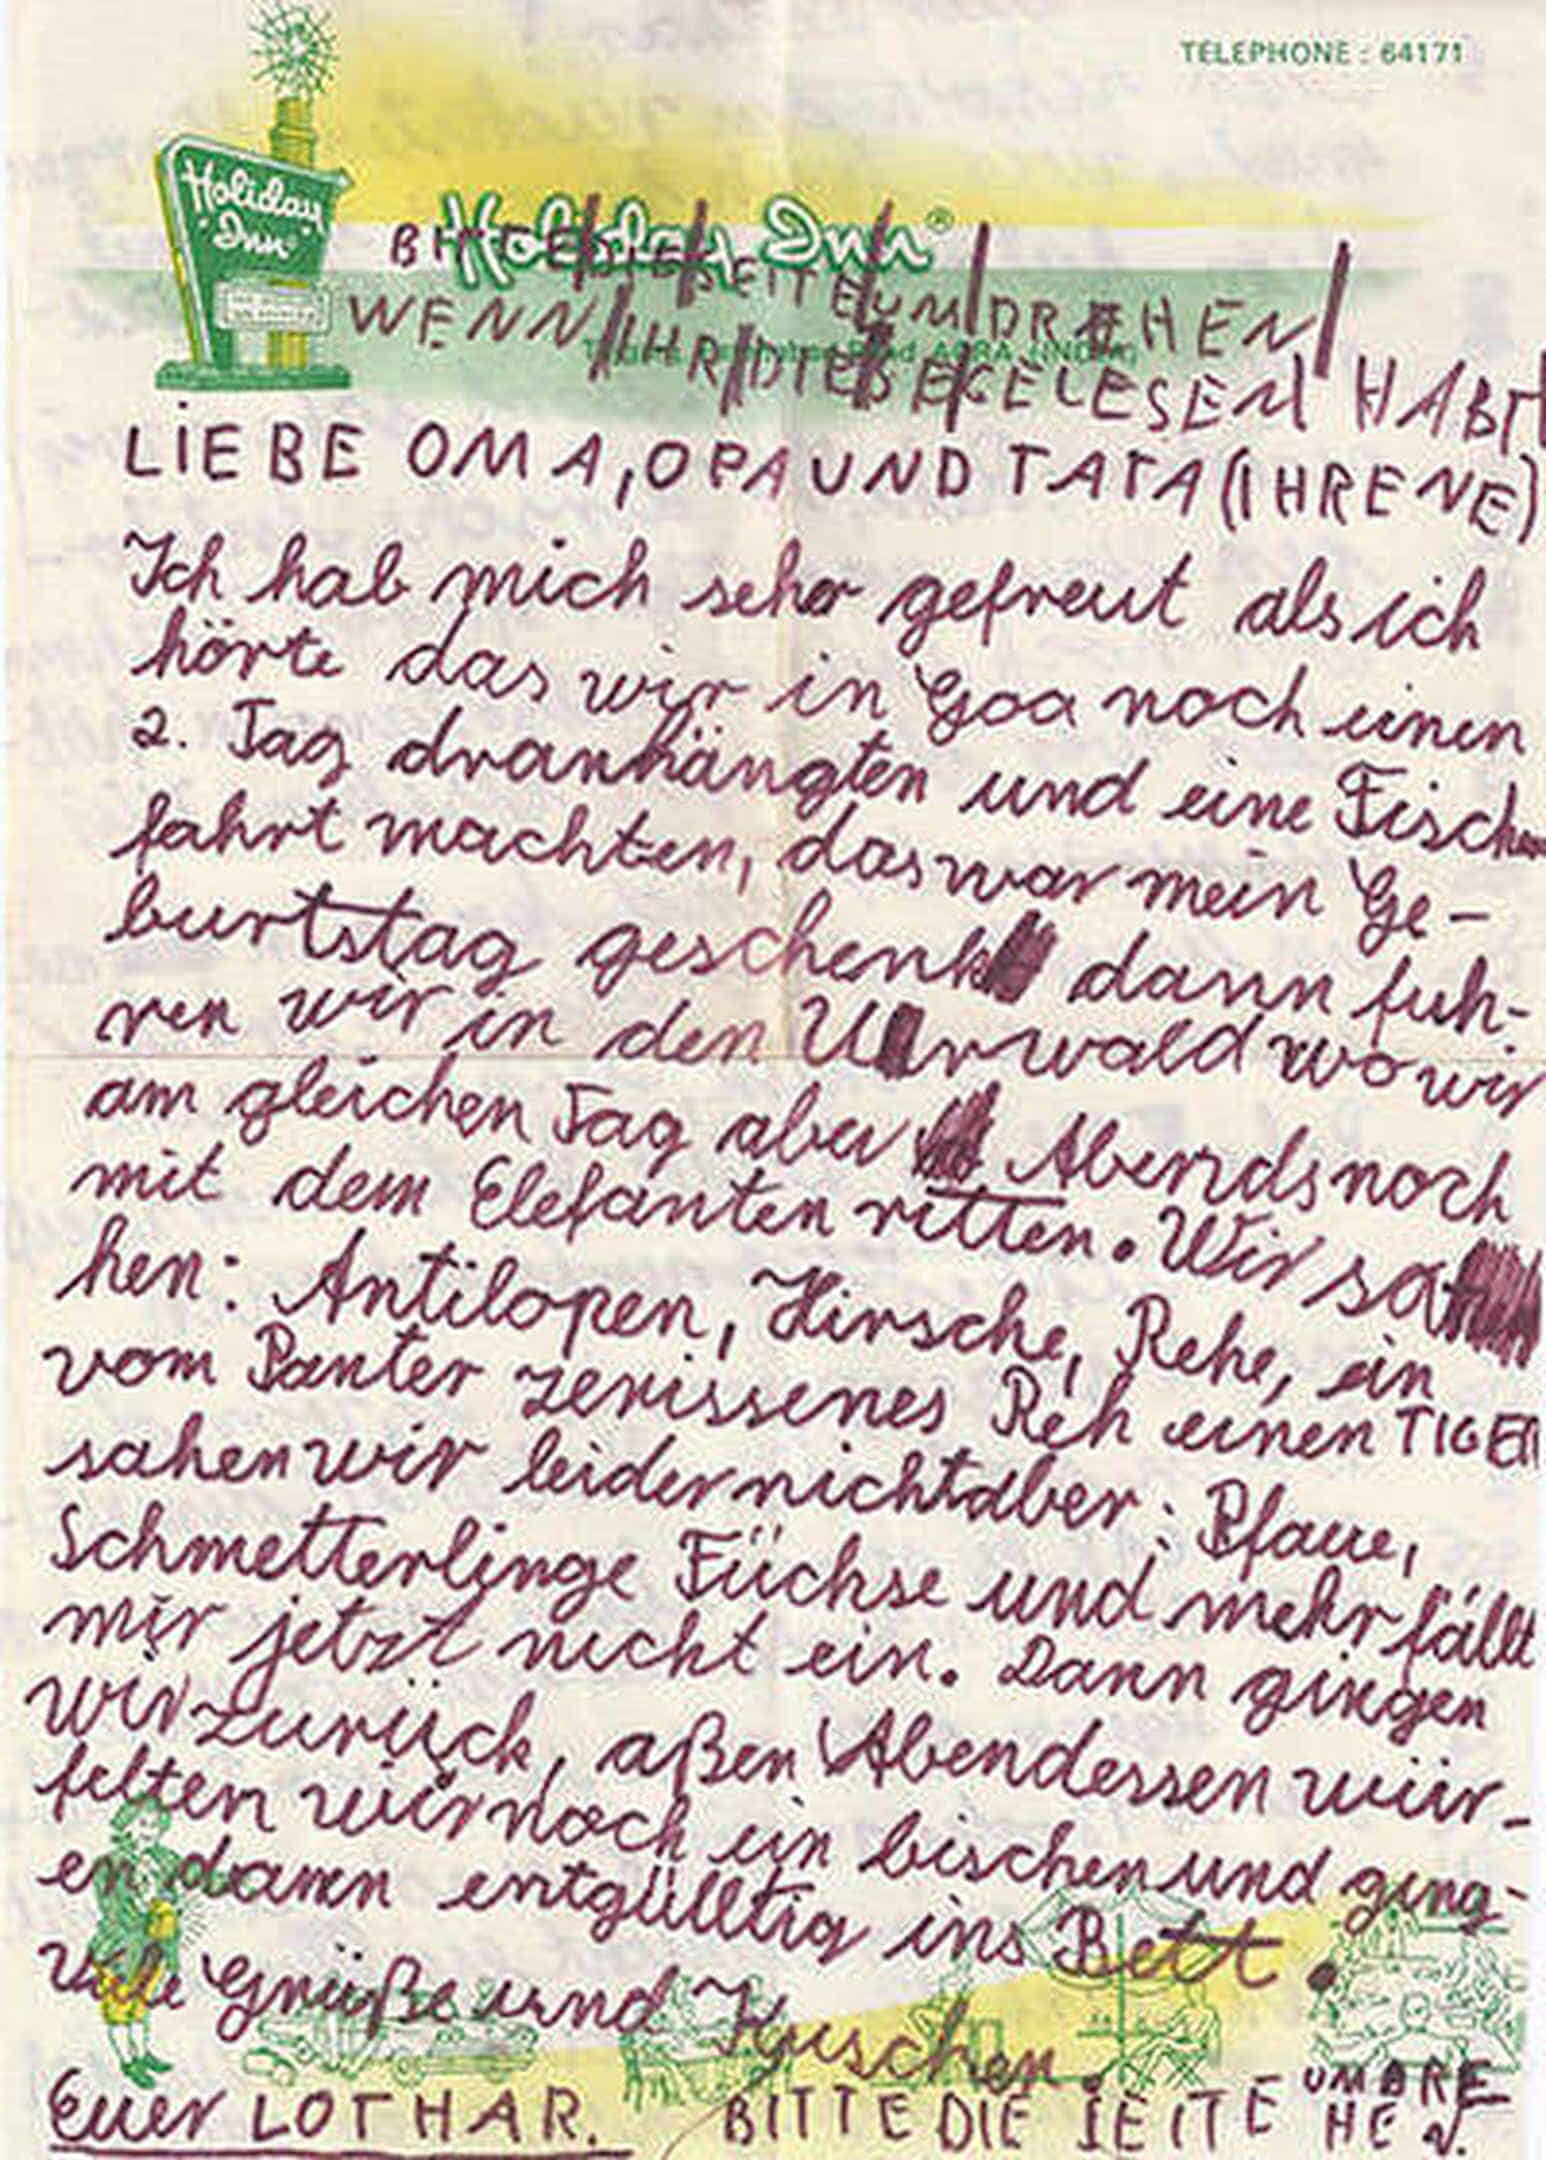 TELEPHONE : 64171
Holiday Inn
Holiday Inn®
BITTE DIE SEITE UMDREHEN
AGRA (INDIA)
WENN IHR DIESE GELESEN HABT
LIEBE OMA, OPA UND TATA (IHRENE)
Ich hab mich sehr gefreut als ich
hörte das wir in Goa noch einen
2. Tag dranhängten und eine Fischer
fahrt machten, das war mein Ge-
burtstag geschenk dann fuh-
ren wir in den Urwald wo wir
am gleichen Tag aber Abends noch
mit dem Elefanten ritten. Wir sa
hen: Antilopen, Hirsche, Rehe, ein
vom Panter zerissenes Reh einen TIGER
sahen wir leider nicht aber: Pfaue,
Schmetterlinge Füchse und mehr fällt
mir jetzt nicht ein. Dann gingen
wir zurück, aßen Abendessen wür-
felten wir noch ein bischen und ging-
en dann entgülltig ins Bett.
Viele Grüße und Kuschen.
Euer LOTHAR. BITTE DIE SEITE UMDRE
HEN.